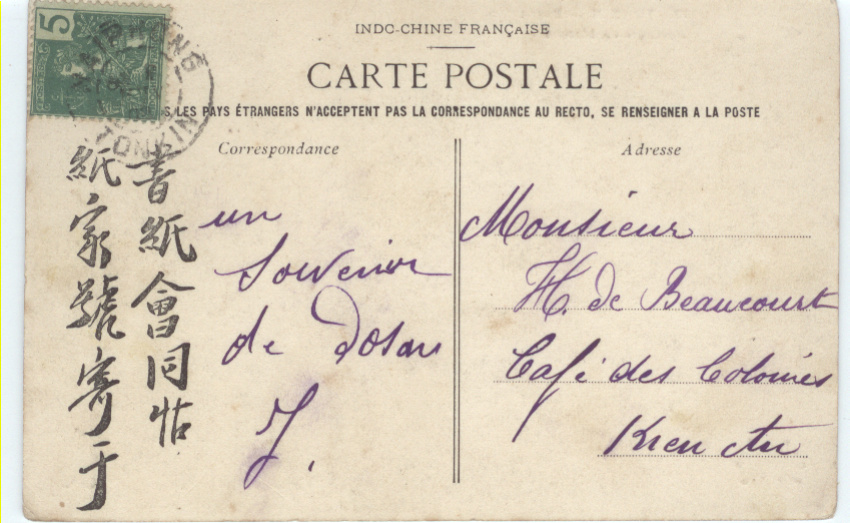 5
HAIPHONG
TONKIN
INDO-CHINE FRANÇAISE
CARTE POSTALE
LES PAYS ÉTRANGERS N'ACCEPTENT PAS LA CORRESPONDANCE AU RECTO, SE RENSEIGNER A LA POSTE
Correspondance
Adresse
書紙會同怗
紙家號寄于
un
Souvenir
de Doson
J.
Monsieur
H. de Beaucourt
Café des Colonies
Kien An